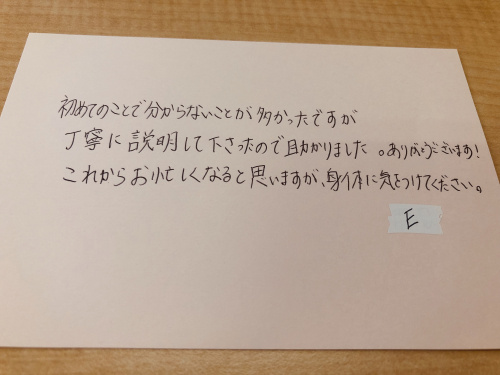 初めてのことで分からないことが多かったですが
丁寧に説明して下さったので助かりました。ありがとうございます!
これからお忙しくなると思いますが、身体に気をつけてください。
E